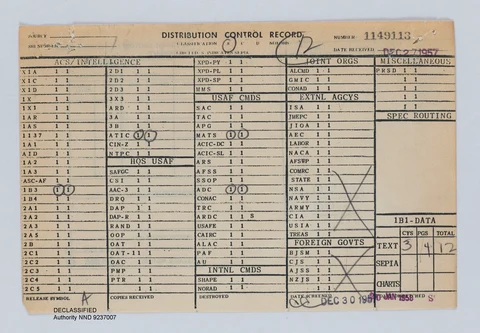 DISTRIBUTION CONTROL RECORD
NUMBER 1149113
CLASSIFICATION
DATE RECEIVED DEC 27 1957
12
ACS/INTELLIGENCE
X1A 1 1
X1C 1 1
X1D 1 1
1X 1 1
1AR 1 1
1AS 1 1
1137 1 1
1A1 1 1
AID 1 1
1A3 1 1
ASC-AF 1 1
1B3 1 1
1B4 1 1
2A1 1 1
2A2 1 1
2A3 1 1
2A5 1 1
2B 1 1
2C1 1 1
2C2 1 1
2C3 1 1
2C4 1 1
2C5 1 1
2D1 1 1
2D2 1 1
2D3 1 1
3X3 1 1
ARD 1 1
3A 1 1
3B 1 1
ATIC 1 1
CIN-Z 1 1
NTPC 1 1
HQS USAF
SAFGC 1 1
CSI 1 1
AAC-3 1 1
DRQ 1 1
DAP 1 1
DAP-R 1 1
RAND 1 1
OOP 1 1
OAT 1 1
OAT-11 1 1
OAC 1 1
PMP 1 1
PTR 1 1
XPD-PY 1 1
XPD-PL 1 1
XPD-SP 1 1
UMS 1 1
USAF CMDS
SAC 1 1
TAC 1 1
APG 1 1
MATS 1 1
ACIC-DC 1 1
ACIC-SL 1 1
ARS 1 1
AFSS 1 1
SSOP 1 1
ADC 1 1
CONAC 1 1
TRC 1 1
ARDC 1 S
USAFE 1 1
CAIRC 1 1
ALAC 1 1
PAF 1 1
AU 1 1
INTNL CMDS
SHAPE 1 1
NORAD 1 1
JOINT ORGS
ALCMD 1 1
GMIC 1 1
CONAD 1 1
EXTNL AGCYS
ISA 1 1
IMEPC 1 1
JIOA 1 1
AEC 1 1
LABOR 1 1
NACA 1 1
AFSWP 1 1
COMRC 1 1
STATE 1 1
NSA 1 1
NAVY 1 1
ARMY 1 1
CIA 1 1
USIA 1 1
TREAS 1 1
FOREIGN GOVTS
BJSM 1 1
CJS 1 1
AJSS 1 1
NZJS 1 1
MISCELLANEOUS
PRSD 1 1
SPEC ROUTING
1B1-DATA
CYS PGS TOTAL
TEXT 3 4 12
SEPIA
CHARTS
RELEASE SYMBOL A
COPIES RECEIVED
DESTROYED
DATE SCREENED DEC 30 1957
JAN 1958 S
DECLASSIFIED
Authority NND 9237007